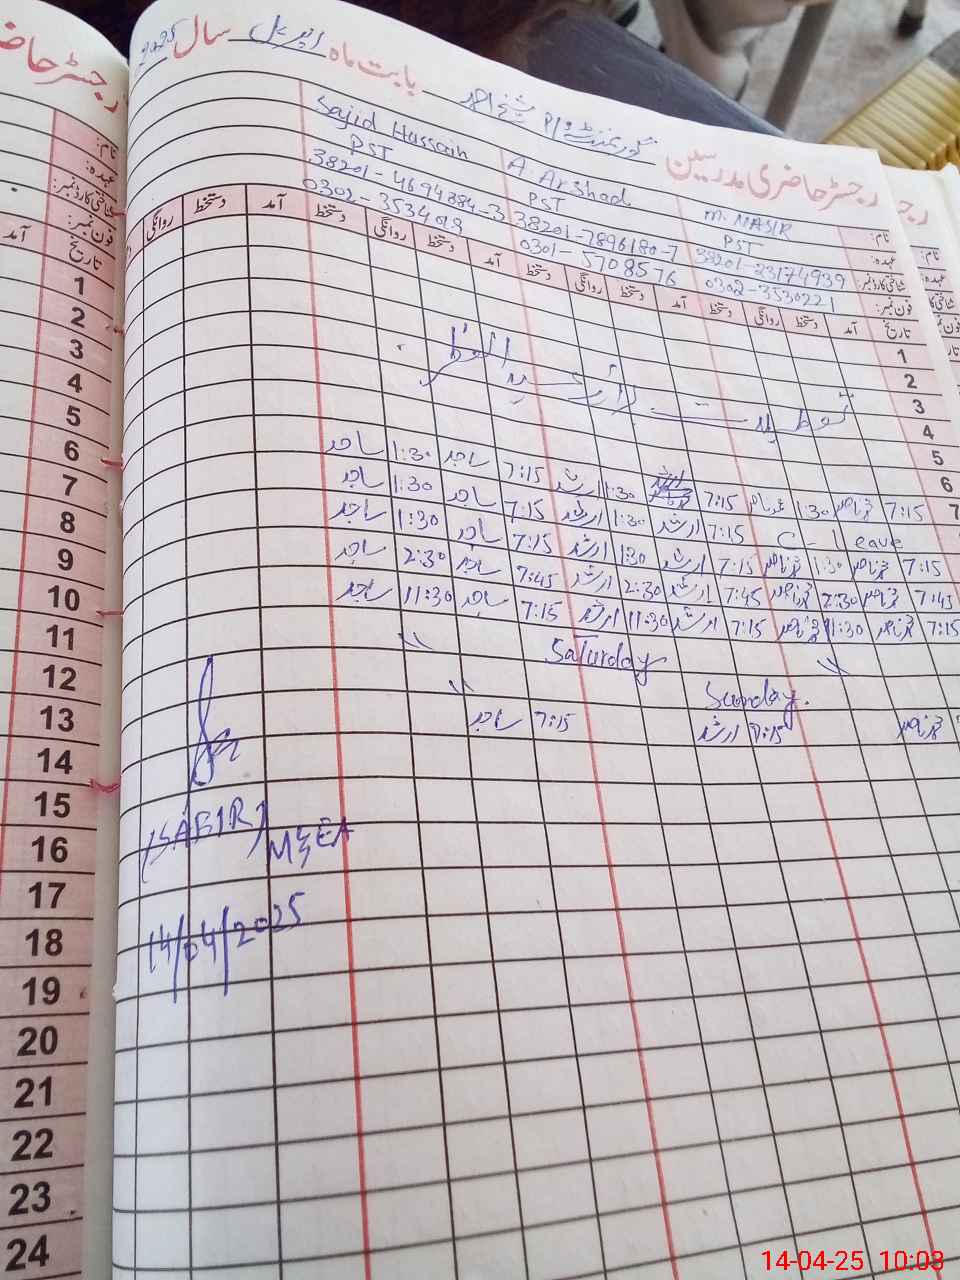 رجسٹر حاضری مدرسین گورنمنٹ P/S شیخ احمد بابت ماہ اپریل سال 2025
رجسٹر حا
نام: M. NASIR A. Arshad Sajid Hussain
عہدہ: PST PST PST
شناختی کارڈ نمبر: 38201-23174939 38201-7896180-7 38201-4694884-3
فون نمبر: 0302-3530221 0301-5708576 0302-3534018
تاریخ آمد دستخط روانگی دستخط آمد دستخط روانگی دستخط آمد دستخط روانگی دستخط آمد دستخط روانگی
نام:
عہدہ:
شناختی کارڈ نمبر:
فون نمبر:
تاریخ
آمد
1
2
3
4
5
6
7
تعطیلات عید الفطر
7:15 محمد ناصر 1:30 محمد ناصر 7:15 ارشد 1:30 ارشد 7:15 ساجد 1:30 ساجد
C-Leave 7:15 ارشد 1:30 ارشد 7:15 ساجد 1:30 ساجد
7:15 محمد ناصر 1:30 محمد ناصر 7:15 ارشد 1:30 ارشد 7:15 ساجد 1:30 ساجد
7:45 محمد ناصر 2:30 محمد ناصر 7:45 ارشد 2:30 ارشد 7:45 ساجد 2:30 ساجد
7:15 محمد ناصر 11:30 محمد ناصر 7:15 ارشد 11:30 ارشد 7:15 ساجد 11:30 ساجد
" Saturday "
" Sunday.
محمد ناصر 7:15 ارشد 7:15 ساجد
(SABIR)
M&EA
14/04/2025
1
2
3
4
5
6
7
8
9
10
11
12
13
14
15
16
17
18
19
20
21
22
23
24
14-04-25 10:03